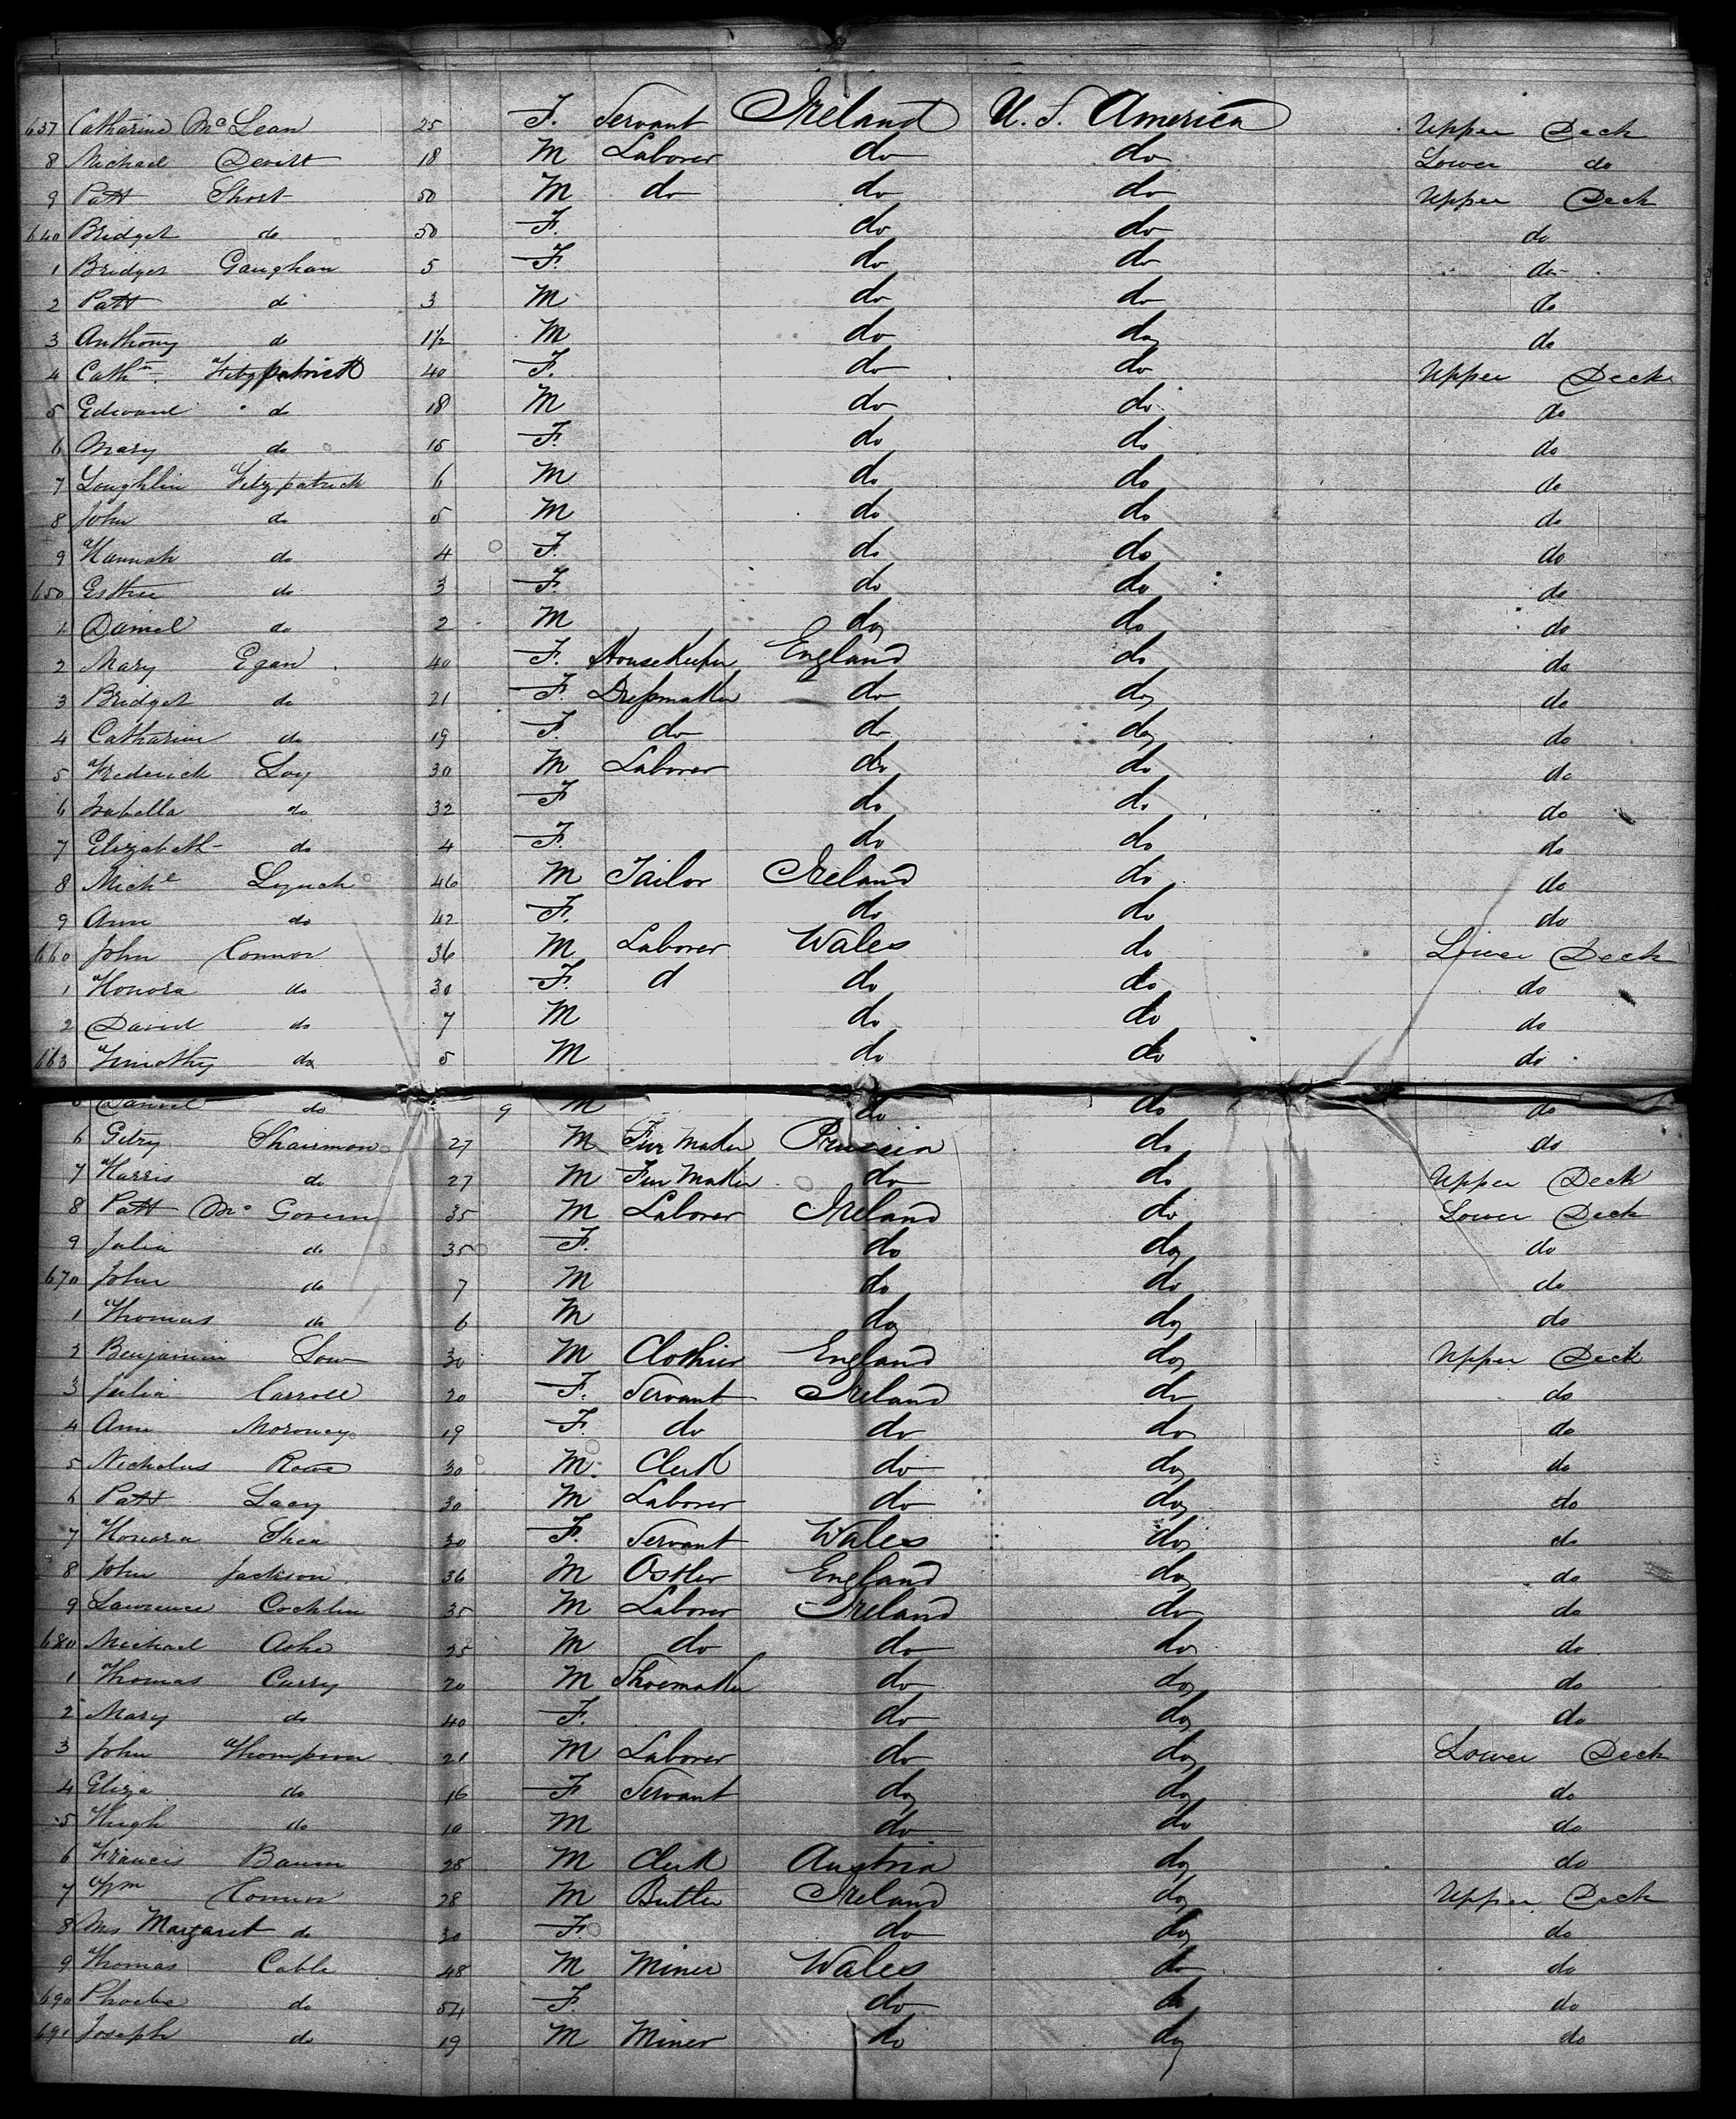 637 Catharine McLean 25 F. Servant Ireland U.S. America Upper Deck
8 Michael Devitt 18 M Laborer do do Lower do
9 Patt Short 50 M do do do Upper Deck
640 Bridget do 50 F. do do do
1 Bridget Gaughan 5 F. do do do
2 Patt do 3 M do do do
3 Anthony do 1½ M do do do
4 Cathn. Fitzpatrick 40 F. do do Upper Deck
5 Edward do 18 M do do do
6 Mary do 15 F. do do do
7 Loughlin Fitzpatrick 6 M do do do
8 John do 5 M do do do
9 Hannah do 4 F. do do do
650 Esther do 3 F. do do do
1 Daniel do 2 M do do do
2 Mary Egan 40 F. HouseKeeper England do do
3 Bridget do 21 F. Dressmaker do do do
4 Catharine do 19 F. do do do do
5 Frederick Loy 30 M Laborer do do do
6 Isabella do 32 F do do do
7 Elizabeth do 4 F. do do do
8 Michl Lynch 46 M Tailor Ireland do do
9 Ann do 42 F. do do do
660 John Connor 36 M Laborer Wales do Lower Deck
1 Honora do 30 F. d do do do
2 David do 7 M do do do
663 Timothy do 5 M do do do
5 Daniel do 9 M do do do
6 Getzy Shairmon 27 M Fur Maker Prussia do do
7 Harris do 27 M Fur Maker do do Upper Deck
8 Patt Mc Govern 35 M Laborer Ireland do Lower Deck
9 Julia do 35 F. do do do
670 John do 7 M do do do
1 Thomas do 6 M do do do
2 Benjamin Low 30 M Clothier England do Upper Deck
3 Julia Carroll 20 F. Servant Ireland do do
4 Ann Moroney 19 F. do do do do
5 Nicholus Rowe 30 M. Clerk do do do
6 Patt Lacy 30 M Laborer do do do
7 Honora Shea 30 F. Servant Wales do do
8 John Jackson 36 M Ostler England do do
9 Lawrence Cochlin 35 M Laborer Ireland do do
680 Michael Ashe 25 M do do do do
1 Thomas Curry 20 M Shoemaker do do do
2 Mary do 40 F. do do do
3 John Thompson 21 M Laborer do do Lower Deck
4 Eliza do 16 F Servant do do do
5 Hugh do 10 M do do do
6 Francis Baum 28 M Clerk Austria do do
7 Wm Connor 28 M Butler Ireland do Upper Deck
8 Mrs Margaret do 30 F do do do
9 Thomas Cable 48 M Miner Wales do do
690 Phoebe do 54 F. do do do
691 Joseph do 19 M Miner do do do